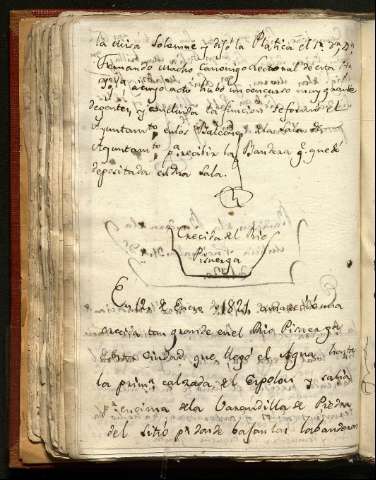 la misa solemne y dijo la Platica el Sr. Dn
Fernando Macho Canonigo Lectoral de esta Sta
Ygla, a cuyo acto hubo un concurso muy grande
de gentes, y concluida la funcion se formó el
Ayuntamto en los Balcones de la Sala de
Ayuntamto pa recibir la Bandera q. quedó
depositada en dha Sala.
Crecida del Rio
Pisuerga
En 12 de Enero de 1821 amanecio una
crecida tan grande en el Rio Pisuerga
de esta Ciudad que llegó el Agua hasta
la prima calzada del Espolon y salia
pr encima de la Varandilla de Piedra
del sitio pr donde bajan las labanderas